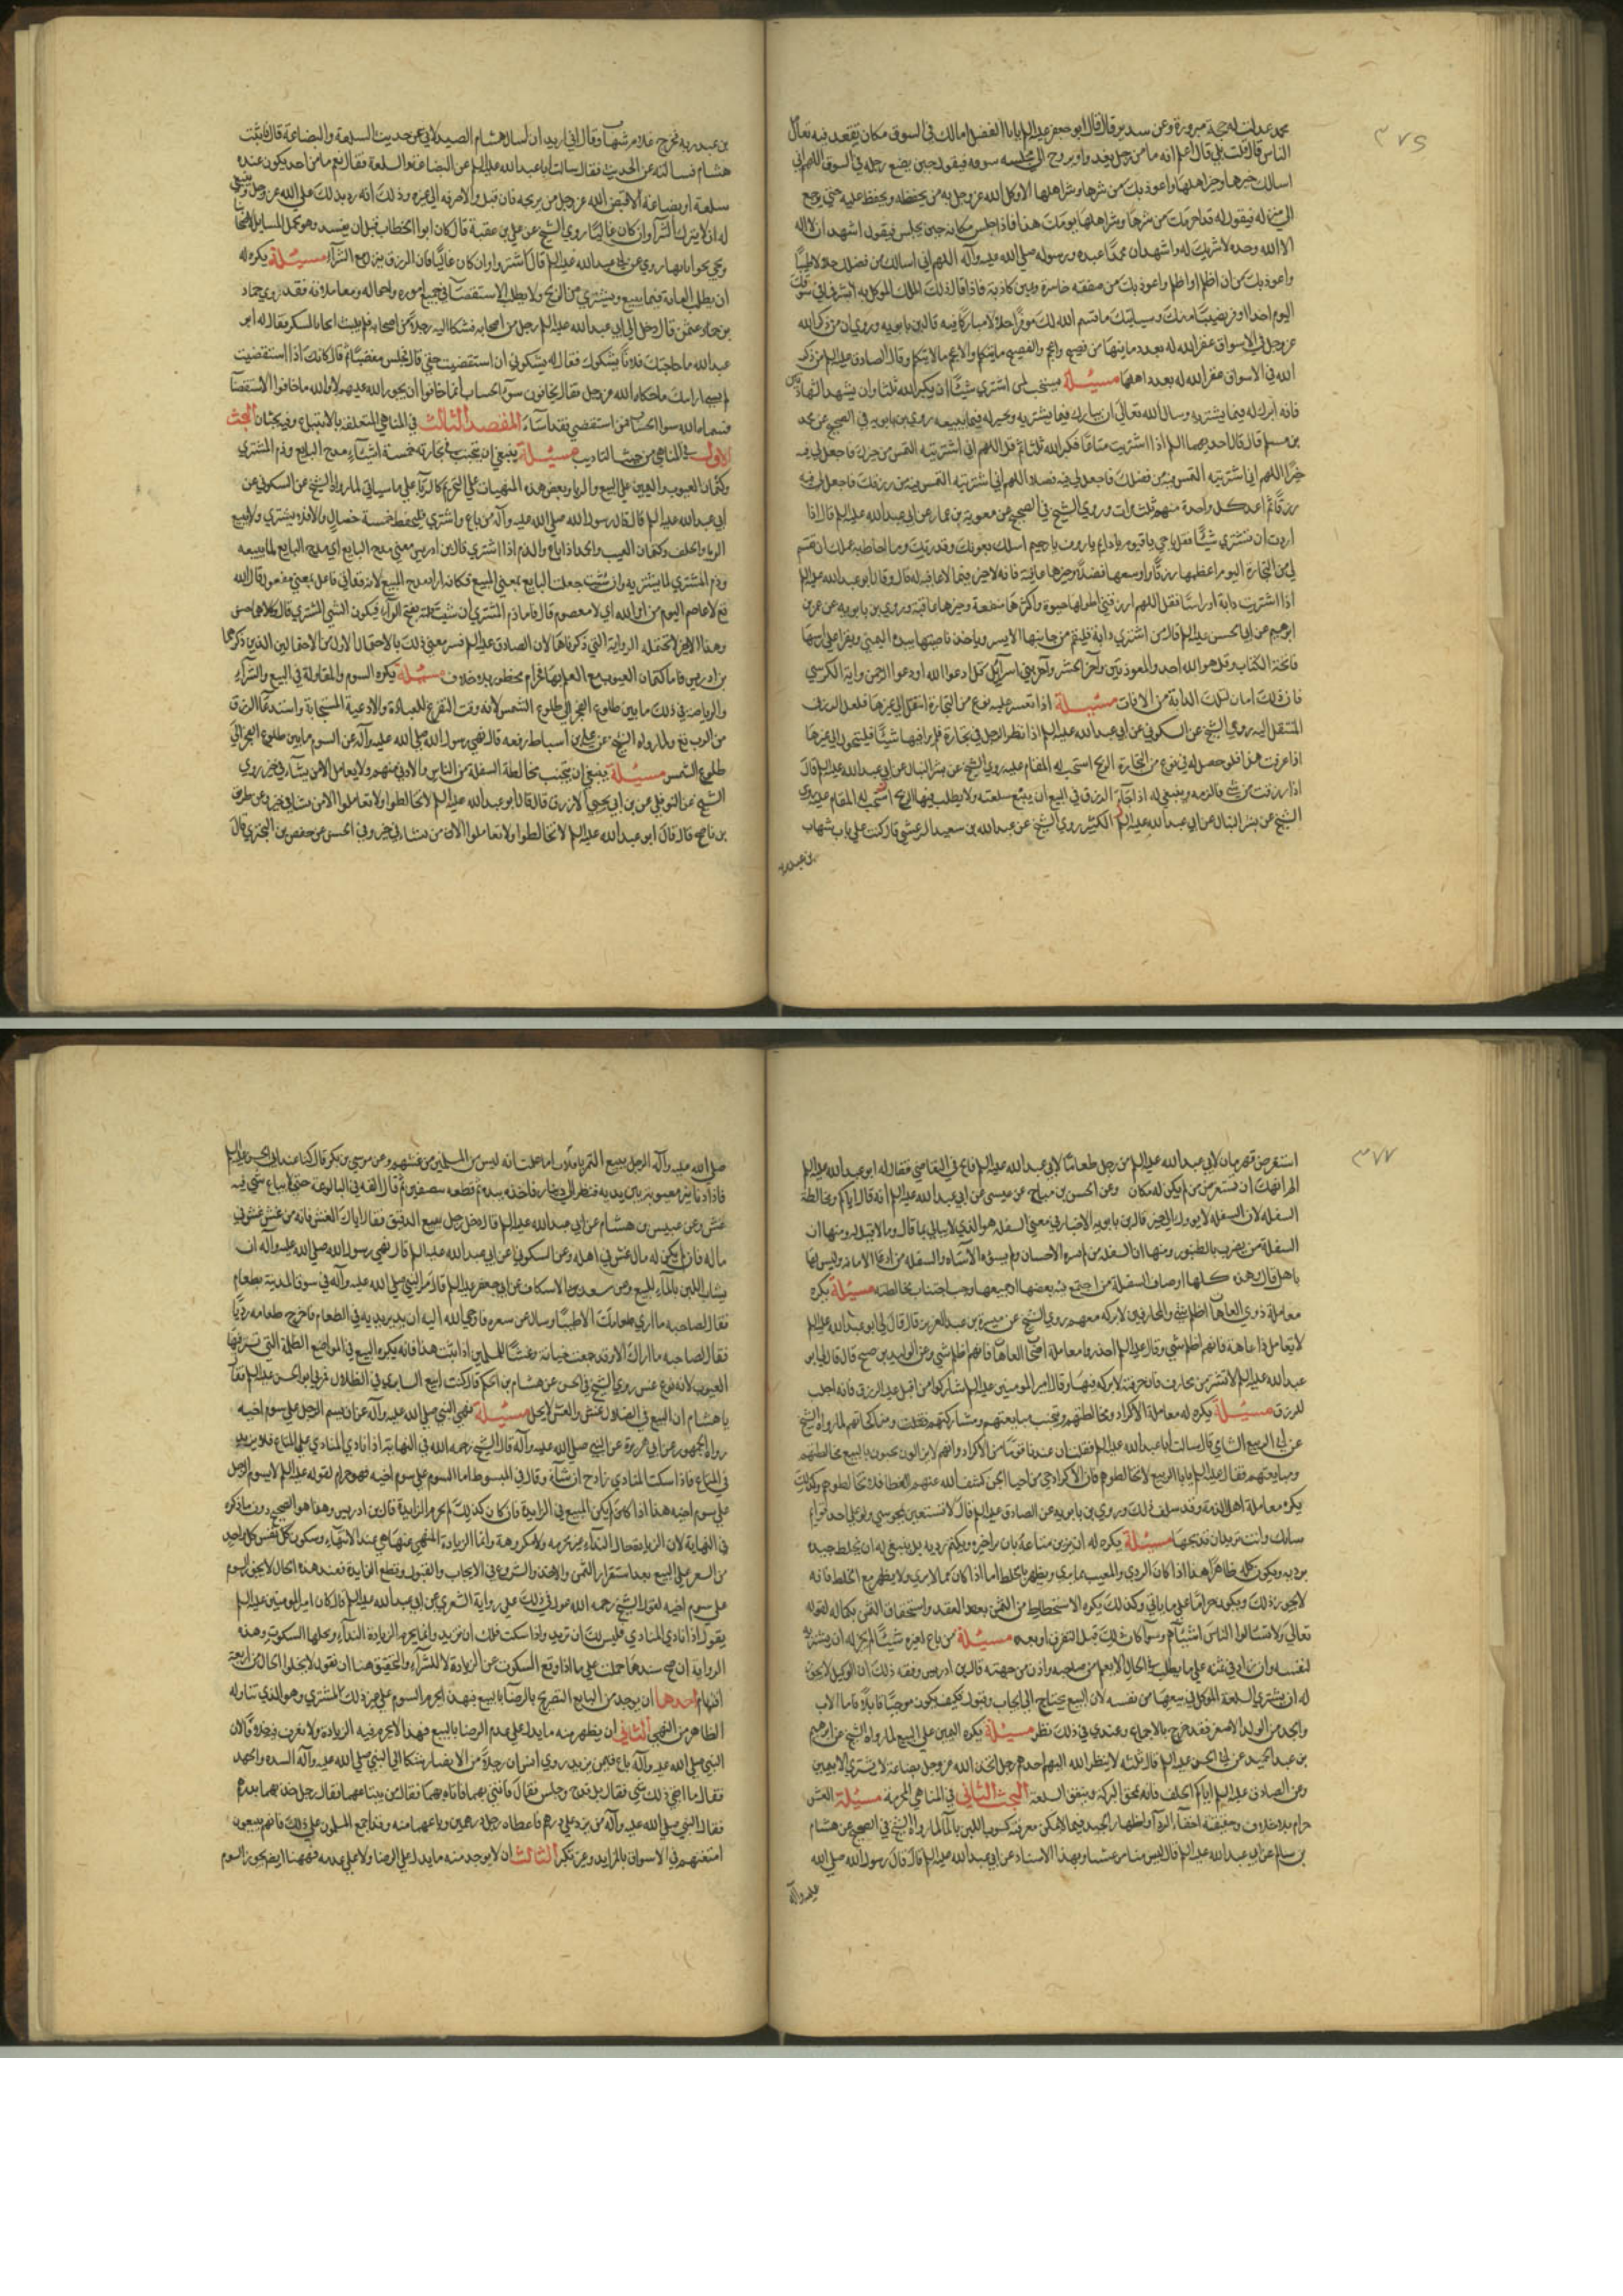 محمد عبدانك له حجة مبرورة وعن سدير قال قال ابو جعفر عليه السلم يا ابا الفضل امالك في السوق مكان تقعد فيه تعامل
الناس قال قلت بلى قال اعلم انه ما من رجل يغدو او يروح الى مجلسه سوقه فيقول حين يضع رجله في السوق اللهم اني
اسالك خيرها وخير اهلها واعوذ بك من شرها وشر اهلها الا وكل الله عز وجل به من يحفظه ويحفظ عليه حتى يرجع
الى منزله فيقول له قد اجرتك من شرها وشر اهلها يومك هذا فاذا جلس مكانه حين يجلس فيقول اشهد ان لا اله
الا الله وحده لا شريك له واشهد ان محمدا عبده ورسوله صلى الله عليه وآله اللهم اني اسالك من فضلك حلالا طيبا
واعوذ بك من ان اظلم او اظلم واعوذ بك من صفقة خاسرة ويمين كاذبة فاذا قال ذلك قال الملك الموكل به ابشر فما في سوقك
اليوم احد اوفر نصيبا منك وسياتيك ما قسم الله لك موفرا حلالا مباركا فيه قال بن بابويه وروي ان من ذكر الله
عز وجل في الاسواق غفر الله له بعدد ما فيها من فصيح واعجم والفصيح ما يتكلم والاعجم ما لا يتكلم وقال الصادق عليه السلم من ذكر
الله في الاسواق غفر الله له بعدد اهلها مسئلة يستحب لمن اشترى شيئا ان يكبر الله ثلثا وان يشهد الشهادتين
فانه ابرك له فيما يشتريه وسال الله تعالى ان يبارك فيما يشتريه ويخير له فيما يبيعه روى بن بابويه في الصحيح عن محمد
بن مسلم قال قال احدهما عليهما السلم اذا اشتريت متاعا فكبر الله ثلثا ثم قل اللهم اني اشتريته التمس من خيرك فاجعل لي فيه
خيرا اللهم اني اشتريته التمس فيه من فضلك فاجعل لي فيه فضلا اللهم اني اشتريته التمس فيه من رزقك فاجعل لي فيه
رزقا ثم اعد كل واحدة منهم ثلث مرات وروى الشيخ في الصحيح عن معوية بن عمار عن ابي عبد الله عليه السلم قال اذا
اردت ان تشتري شيئا فقل يا حي يا قيوم يا دائم يا رؤف يا رحيم اسالك بعزتك وقدرتك وما احاط به علمك ان تقسم
لي من التجارة اليوم اعظمها رزقا واوسعها فضلا وخيرها عاقبة فانه لا خير فيما لا عاقبة له قال وقال ابو عبد الله عليه السلم
اذا اشتريت دابة او راسا فقل اللهم ارزقني اطولها حيوة واكثرها منفعة وخيرها عاقبة وروى بن بابويه عن عمر بن
ابرهيم عن ابي الحسن عليه السلم قال من اشترى دابة فليقم من جانبها الايسر وياخذ ناصيتها بيده اليمنى ويقرا على راسها
فاتحة الكتاب وقل هو الله احد والمعوذتين وآخر الحشر وآخر بني اسرائيل قل ادعوا الله او ادعوا الرحمن واية الكرسي
فان ذلك امان لتلك الدابة من الافات مسئلة اذا تعسر عليه نوع من التجارة انتقل الى غيرها فلعل الرزق في
المنتقل اليه روى الشيخ عن السكوني عن ابي عبد الله عليه السلم اذا نظر الرجل في تجارة فلم ير فيها شيئا فليتحول الى غيرها
اذا عرفت هذا فلو حصل له في نوع من التجارة الربح استحب له المقام عليه روى الشيخ عن بشير النبال عن ابي عبد الله عليه السلم قال
اذا رزقت من شئ فالزمه وينبغي له اذا جاءه الرزق في البيع ان يبيع سلعته ولا يطلب فيها الربح
الشيخ عن بشير النبال عن ابي عبد الله عليه السلم الكثير روى الشيخ عن عبد الله بن سعيد الدغشي قال كنت على باب شهاب
بن عبد ربه
بن عبد ربه فخرج غلام شهاب وقال اني اريد ان اسال هشام الصيدلاني عن حديث السلعة والبضاعة قال فاتيت
هشام فسالته عن الحديث فقال سالت ابا عبد الله عليه السلم عن البضاعة والسلعة فقال نعم ما من احد يكون عنده
سلعة او بضاعة الا قبض الله عز وجل من يربحه فان قبل والا صرفه الى غيره وذلك انه رد بذلك على الله عز وجل وينبغي
له ان لا يترك الشرآء وان كان غاليا روى الشيخ عن علي بن عقبة قال كان ابو الخطاب قبل ان يفسد وهو يحمل المسائل لاصحابنا
ويجئ بجواباتها روى عن ابي عبد الله عليه السلم قال اشتروا وان كان غاليا فان الرزق ينزل مع الشرآء مسئلة يكره له
ان يطلب الغاية فيما يبيع ويشتري من الربح ولا يطلب الاستقصاء في جميع اموره واحواله ومعاملاته فقد روى حماد
بن عمن قال دخل الى ابي عبد الله عليه السلم رجل من اصحابه فشكا اليه رجلا من اصحابه فلم يلبث ان جاء المشكو فقال له ابو
عبد الله ما حاجتك فلانا يشكوك فقال له يشكوني ان استقضيت حقي قال فجلس مغضبا ثم قال كانك اذا استقضيت
لم تسئ ارايتك ما حكاه الله عز وجل فقال يخافون سوء الحساب انما خافوا ان يجور الله عليهم لا والله ما خافوا الا الاستقصآء
فسماه الله سوء الحساب فمن استقصى فقد اساء المقصد الثالث في المناهي المتعلقة بالابتياع وفيه بحثان البحث
الاول في المناهي من حيث التاديب مسئلة ينبغي ان يتجنب في تجارته خمسة اشيآء مدح البايع وذم المشتري
وكتمان العيوب واليمين على البيع والربا وبعض هذه المنهيات على التحريم كالربا على ما سياتي لما رواه الشيخ عن السكوني عن
ابي عبد الله عليه السلم قال قال رسول الله صلى الله عليه وآله من باع واشترى فليحفظ خمسة خصال والا فلا يشتري ولا يبيع
الربا والحلف وكتمان العيب والحمد اذا باع والذم اذا اشترى قال بن ادريس معنى مدح البايع اي مدح البايع لما يبيعه
وذم المشتري لما يشتريه وان شئت جعلت البايع بمعنى المبيع فكانه اراد مدح المبيع لانه قد اتى فاعل بمعنى مفعول قال الله
تع لا عاصم اليوم من امر الله اي لا معصوم قال فاما ذم المشتري ان شئت قلته بفتح الرآء فيكون الشئ المشترى قال كلاهما حسن
وهذا الاخير لا تحتمله الرواية التي ذكرناها لان الصادق عليه السلم فسر معنى ذلك بالاحتمال الاول من الاحتمالين الذين ذكرهما
بن ادريس فاما كتمان العيوب مع العلم بها فحرام محظور بلا خلاف مسئلة يكره السوم والمقاولة في البيع والشرآء
والرياضة في ذلك ما بين طلوع الفجر الى طلوع الشمس لانه وقت التفرغ للعبادة والادعية المستجابة واستدعاء الرزق
من الرب تع ولما رواه الشيخ عن علي بن اسباط رفعه قال نهى رسول الله صلى الله عليه وآله عن السوم ما بين طلوع الفجر الى
طلوع الشمس مسئلة ينبغي ان يتجنب مخالطة السفلة من الناس والادنين منهم ولا يعامل الا من نشا في خير روى
الشيخ عن النوفلي عن بن ابي يحيى الرازي قال قال ابو عبد الله عليه السلم لا تخالطوا ولا تعاملوا الا من نشا في خير وعن ظريف
بن ناصح قال قال ابو عبد الله عليه السلم لا تخالطوا ولا تعاملوا الا من نشا في خير وفي الحسن عن حفص بن البختري قال
٣٧٦
٣٧٧
استقرض قهرمان لابي عبد الله عليه السلم من رجل طعاما لابي عبد الله عليه السلم فالح في التقاضي فقال له ابو عبد الله عليه السلم
الم انهك ان تستقرض من لم يكن له فكان وعن الحسن بن مياح عن عيسى عن ابي عبد الله عليه السلم انه قال اياكم ومخالطة
السفلة لان السفلة لا يؤول الى خير قال بن بابويه الاخبار في معنى السفلة هو الذي لا يبالي بما قال وما لا قيل له ومنها ان
السفلة من يضرب بالطنبور ومنها ان السفلة من لم يسره الاحسان ولم يسؤه الاسآءة والسفلة من ادعى الامانة وليس لها
باهل قال وهذه كلها اوصاف السفلة من اجتمع فيه بعضها او جميعها وجب اجتناب مخالطته مسئلة يكره
معاملة ذوي العاهات اظلم شئ والمحارفين لا بركة معهم روى الشيخ عن ميسرة بن عبد العزيز قال قال لي ابو عبد الله عليه السلم
لا تعامل ذا عاهة فانهم اظلم شئ وقال عليه السلم احذروا معاملة اصحاب العاهات فانهم اظلم شئ وعن الوليد بن صبيح قال قال لي ابو
عبد الله عليه السلم لا تشتر من محارف فان حرفته لا بركة فيها وقال امير المومنين عليه السلم شاركوا من اقبل عليه الرزق فانه اجلب
للرزق مسئلة يكره له معاملة الاكراد ومخالطتهم ويتجنب مبايعتهم ومشاركتهم ومناكحاتهم لما رواه الشيخ
عن ابي الربيع الشامي قال سالت ابا عبد الله عليه السلم فقلت ان عندنا قوما من الاكراد وانهم لا يزالون يجيؤن بالبيع نخالطهم
ونبايعهم فقال عليه السلم يا ابا الربيع لا تخالطوهم فان الاكراد حي من احياء الجن كشف الله عنهم الغطا فلا تخالطوهم وكذلك
يكره معاملة اهل الذمة وقد سلف ذلك وروى بن بابويه عن الصادق عليه السلم قال لا تستعين بمجوسي ولو على اخذ قوايم
شاتك وانت تريد ان تذبحها مسئلة يكره له ان يزين متاعه بان يرى خيره ويكتم رديه بل ينبغي له ان يخلط جيده
برديه ويكون كله ظاهرا هذا اذا كان الردي والمعيب مما يرى ويظهر بالخلط اما اذا كان مما لا يرى ولا يظهر مع الخلط فانه
لا يجوز ذلك ويكون حراما على ما ياتي وكذلك يكره الاستحطاط من الثمن بعد العقد واستحقاق الثمن بكماله لقوله
تعالى ولا تبخسوا الناس اشيآءهم وسوآء كان ذلك قبل التفرق او بعده مسئلة من باع لغيره شيئا لم يجز له ان يشتريه
لنفسه وان زاد في ثمنه على ما يطلب في الحال الا بعلم من صاحبه واذن من جهته قال بن ادريس وفقه ذلك ان الوكيل لا يجوز
له ان يشتري السلعة الموكل في بيعها من نفسه لان البيع يحتاج الى ايجاب وقبول فكيف يكون موجبا قابلا فاما الاب
والجد من الولد الاصغر فقد خرج بالاجماع وعندي في ذلك نظر مسئلة يكره اليمين على البيع لما رواه الشيخ عن ابرهيم
بن عبد الحميد عن ابي الحسن عليه السلم قال ثلثة لا ينظر الله اليهم احدهم رجل اتخذ الله عز وجل بضاعة لا يشتري الا بيمين
وعن الصادق عليه السلم اياكم والحلف فانه يمحق البركة وينفق السلعة البحث الثاني في المناهي المحرمة مسئلة الغش
حرام بلا خلاف وحقيقته اخفآء الردي واظهار الجيد فيما لا يمكن معرفته كشوب اللبن بالمآء لما رواه الشيخ في الصحيح عن هشام
بن سالم عن ابي عبد الله عليه السلم قال ليس منا من غشنا وبهذا الاسناد عن ابي عبد الله عليه السلم قال قال رسول الله صلى الله
عليه وآله
صلى الله عليه وآله لرجل يبيع التمر يا فلان اما علمت انه ليس من المسلمين من غشهم وعن موسى بن بكر قال كنا عند ابي الحسن عليه السلم
فاذا دنانير مصبوبة بين يديه فنظر الى دينار فاخذه بيده ثم قطعه نصفين ثم قال القه في البالوعة حتى لا يباع شئ فيه
غش وعن عبيس بن هشام عن ابي عبد الله عليه السلم قال دخل رجل يبيع الدقيق فقال اياك والغش فانه من غش غش في
ماله فان لم يكن له مال غش في اهله وعن السكوني عن ابي عبد الله عليه السلم قال نهى رسول الله صلى الله عليه وآله ان
يشاب اللبن بالمآء للبيع وعن سعد الاسكاف عن ابي جعفر عليه السلم قال مر النبي صلى الله عليه وآله في سوق المدينة بطعام
فقال لصاحبه ما ارى طعامك الا طيبا وساله عن سعره فاوحى الله اليه ان يدير يديه في الطعام فاخرج طعاما رديا
فقال لصاحبه ما اراك الا وقد جمعت خيانة وغشا للمسلمين اذا ثبت هذا فانه يكره البيع في المواضع الظلمة التي تستر فيها
العيوب لانه نوع غش روى الشيخ في الحسن عن هشام بن الحكم قال كنت ابيع السابري في الظلال فمر بي ابو الحسن عليه السلم فقال
يا هشام ان البيع في الظلال غش والغش لا يحل مسئلة نهى النبي صلى الله عليه وآله عن ان يسوم الرجل على سوم اخيه
رواه الجمهور عن ابي هريرة عن النبي صلى الله عليه وآله قال الشيخ رحمه الله في النهاية اذا نادى المنادي على المتاع فلا يزيد
في المتاع فاذا سكت المنادي زاد ح ان شآء وقال في المبسوط اما السوم على سوم اخيه فهو حرام لقوله عليه السلم لا يسوم الرجل
على سوم اخيه هذا اذا كان لم يكن المبيع في المزايدة فان كان كذلك لم يحرم المزايدة قال بن ادريس وهذا هو الصحيح دون ما ذكره
في النهاية لان الزيادة حال الندآء غير محرمة ولا مكروهة وانما الزيادة المنهي عنها هي عند الانتهاء وسكون نفس كل واحد
من البيع بعد استقرار الثمن والاخذ والشروع في الايجاب والقبول وقطع المزايدة فعند هذه الحال لا يجوز السوم
على سوم اخيه لقول الشيخ رحمه الله عول في ذلك على رواية الشعيري عن ابي عبد الله عليه السلم قال كان امير المومنين عليه السلم
يقول اذا نادى المنادي فليس لك ان تزيد واذا سكت فلك ان تزيد وانما يحرم الزيادة الندآء ويحلها السكوت وهذه
الرواية ان صح سندها حملت على ما اذا وقع السكوت عن الزيادة لا للشرآء والتحقيق هنا ان نقول لا يخلو الحال من اربعة
اقسام احدها ان يوجد من البايع التصريح بالرضا بالبيع فهذا يحرم السوم على غير ذلك المشتري وهو الذي تناوله
الظاهر من النهي الثاني ان يظهر منه ما يدل على عدم الرضا بالبيع فهذا لا يحرم فيه الزيادة ولا نعرف فيه خلافا لان
النبي صلى الله عليه وآله باع فيمن يزيد روى انس ان رجلا من الانصار شكا الى النبي صلى الله عليه وآله الشدة والجهد
فقال له ما بقي لك شئ فقال بلى قدح وحلس فقال فاتني بهما فاتاه بهما فقال من يبتاعهما فقال رجل اخذتهما بدرهم
فقال النبي صلى الله عليه وآله من يزيد على درهم فاعطاه رجل درهمين وباعهما منه وقد اجمع المسلمون على ذلك فانهم يبيعون
امتعتهم في الاسواق بالمزايد وغير نكير الثالث ان لا يوجد منه ما يدل على الرضا ولا على عدمه فهيهنا ايضا يجوز السوم